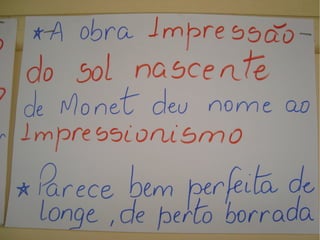 *A obra Impressão-
do sol nascente
de Monet deu nome ao
Impressionismo
*Parece bem perfeita de
longe, de perto borrada